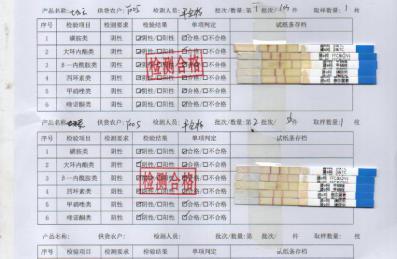 产品名称: 供货农户: Y005 检测人员: 批次/数量:第 1 批次/ 件 取样数量: 1 枚
序号 检验项目 检测要求 检验结果 单项判定 试纸条存档
1 磺胺类 阴性 ☑阴性/☐阳性 ☑合格/☐不合格
2 大环内酯类 阴性 ☑阴性/☐阳性 ☑合格/☐不合格
3 β－内酰胺类 阴性 ☑阴性/☐阳性 ☑合格/☐不合格
4 四环素类 阴性 ☑阴性/☐阳性 ☑合格/☐不合格
5 甲硝唑 阴性 ☑阴性/☐阳性 ☑合格/☐不合格
6 喹诺酮类 阴性 ☑阴性/☐阳性 ☑合格/☐不合格
检测合格
产品名称: 供货农户: Y005 检测人员: 批次/数量:第 2 批次/ 件 取样数量: 1 枚
序号 检验项目 检测要求 检验结果 单项判定 试纸条存档
1 磺胺类 阴性 ☑阴性/☐阳性 ☑合格/☐不合格
2 大环内酯类 阴性 ☑阴性/☐阳性 ☑合格/☐不合格
3 β－内酰胺类 阴性 ☑阴性/☐阳性 ☑合格/☐不合格
4 四环素类 阴性 ☑阴性/☐阳性 ☑合格/☐不合格
5 甲硝唑 阴性 ☑阴性/☐阳性 ☑合格/☐不合格
6 喹诺酮类 阴性 ☑阴性/☐阳性 ☑合格/☐不合格
检测合格
产品名称: 供货农户: 检测人员: 批次/数量:第 批次/ 件 取样数量: 枚
序号 检验项目 检测要求 检验结果 单项判定 试纸条存档